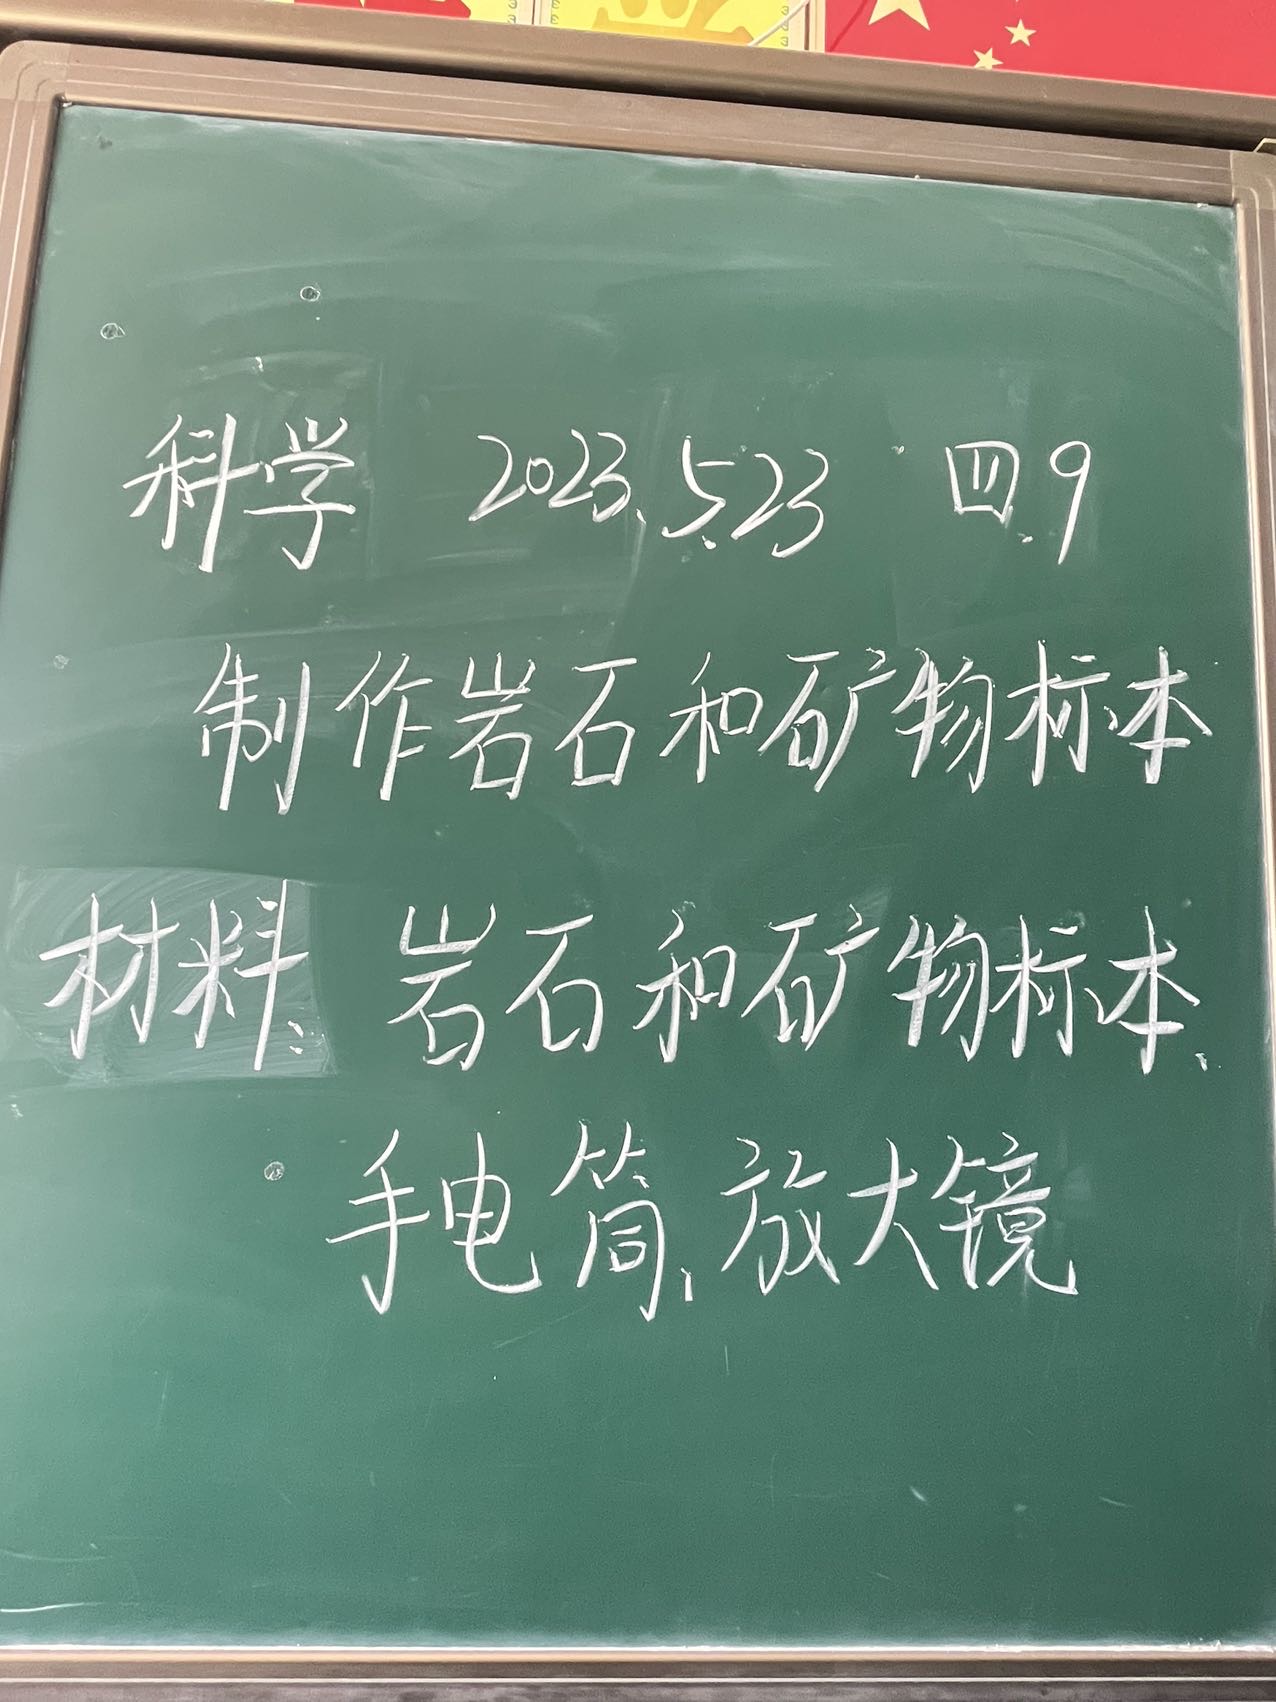 科学 2023.5.23 四.9
制作岩石和矿物标本
材料: 岩石和矿物标本、
手电筒、放大镜